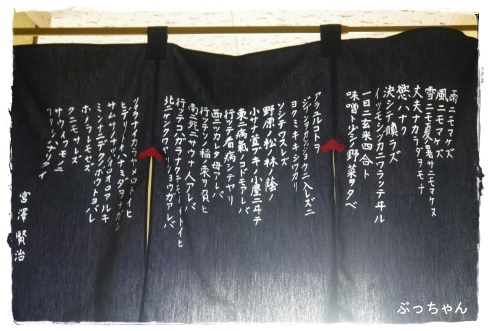 雨ニモマケズ
風ニモマケズ
雪ニモ夏ノ暑サニモマケヌ
丈夫ナカラダヲモチ
慾ハナク
決シテ瞋ラズ
イツモシヅカニワラッテヰル
一日ニ玄米四合ト
味噌ト少シノ野菜ヲタベ
アラユルコトヲ
ジブンヲカンジョウニ入レズニ
ヨクミキキシワカリ
ソシテワスレズ
野原ノ松ノ林ノ陰ノ
小サナ萓ブキノ小屋ニヰテ
東ニ病氣ノコドモアレバ
行ッテ看病シテヤリ
西ニツカレタ母アレバ
行ッテソノ稲束ヲ負ヒ
南ニ死ニサウナ人アレバ
行ッテコハガラナクテモイヽトイヒ
北ニケンクヮヤソショウガアレバ
ツマラナイカラヤメロトイヒ
ヒデリノトキハナミダヲナガシ
サムサノナツハオロオロアルキ
ミンナニデクノボウトヨバレ
ホメラレモセズ
クニモサレズ
サウイフモノニ
ワタシハナリタイ
宮澤賢治
ぶっちゃん